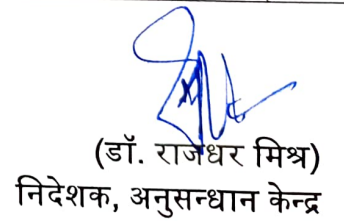 (डॉ. राजधर मिश्र)
निदेशक, अनुसन्धान केन्द्र